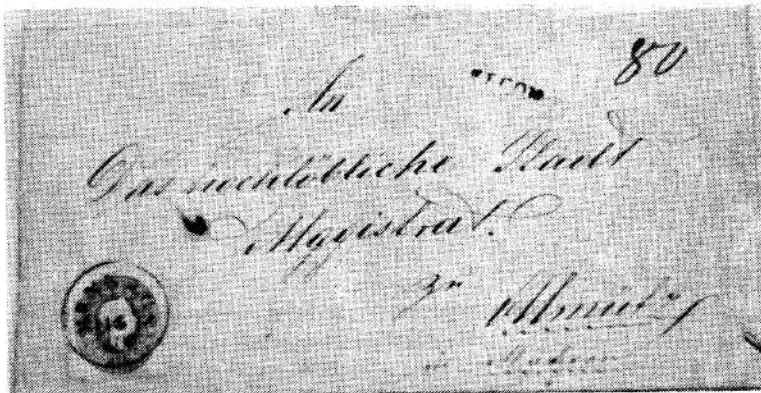 80
An
Das hochlöbliche Stadt
Magistrat.
zu Olmütz
in Mähren